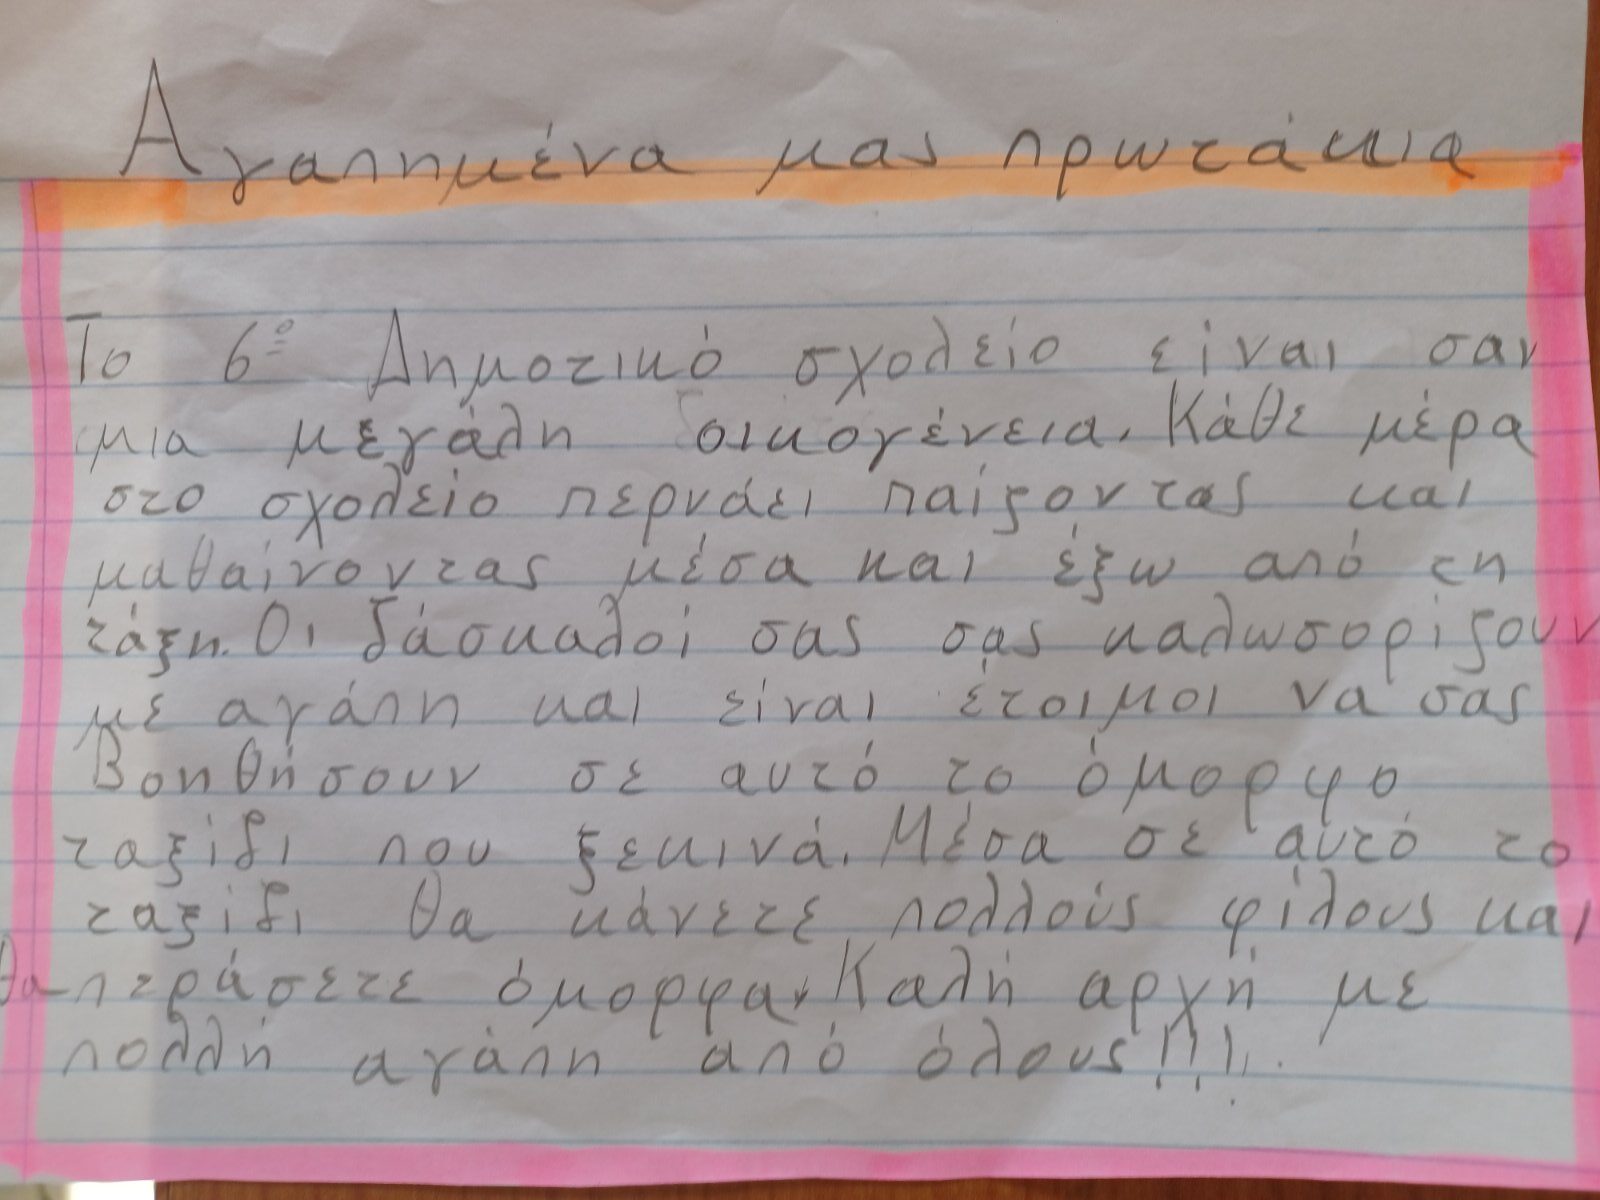 Αγαπημένα μας πρωτάκια
Το 6º Δημοτικό σχολείο είναι σαν
μια μεγάλη οικογένεια. Κάθε μέρα
στο σχολείο περνάει παίζοντας και
μαθαίνοντας μέσα και έξω από τη
τάξη. Οι δάσκαλοί σας σας καλωσορίζουν
με αγάπη και είναι έτοιμοι να σας
Βοηθήσουν σε αυτό το όμορφο
ταξίδι που ξεκινά. Μέσα σε αυτό το
ταξίδι θα κάνετε πολλούς φίλους και
θα περάσετε όμορφα. Καλή αρχή με
πολλή αγάπη από όλους!!!